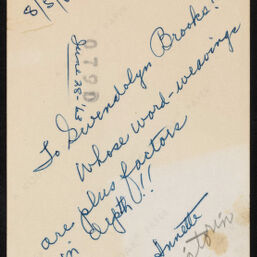 8/3/
0790
June 28-63
To Gwendolyn Brooks!
Whose word-weavings
are plus factors
in depth!!
Annette